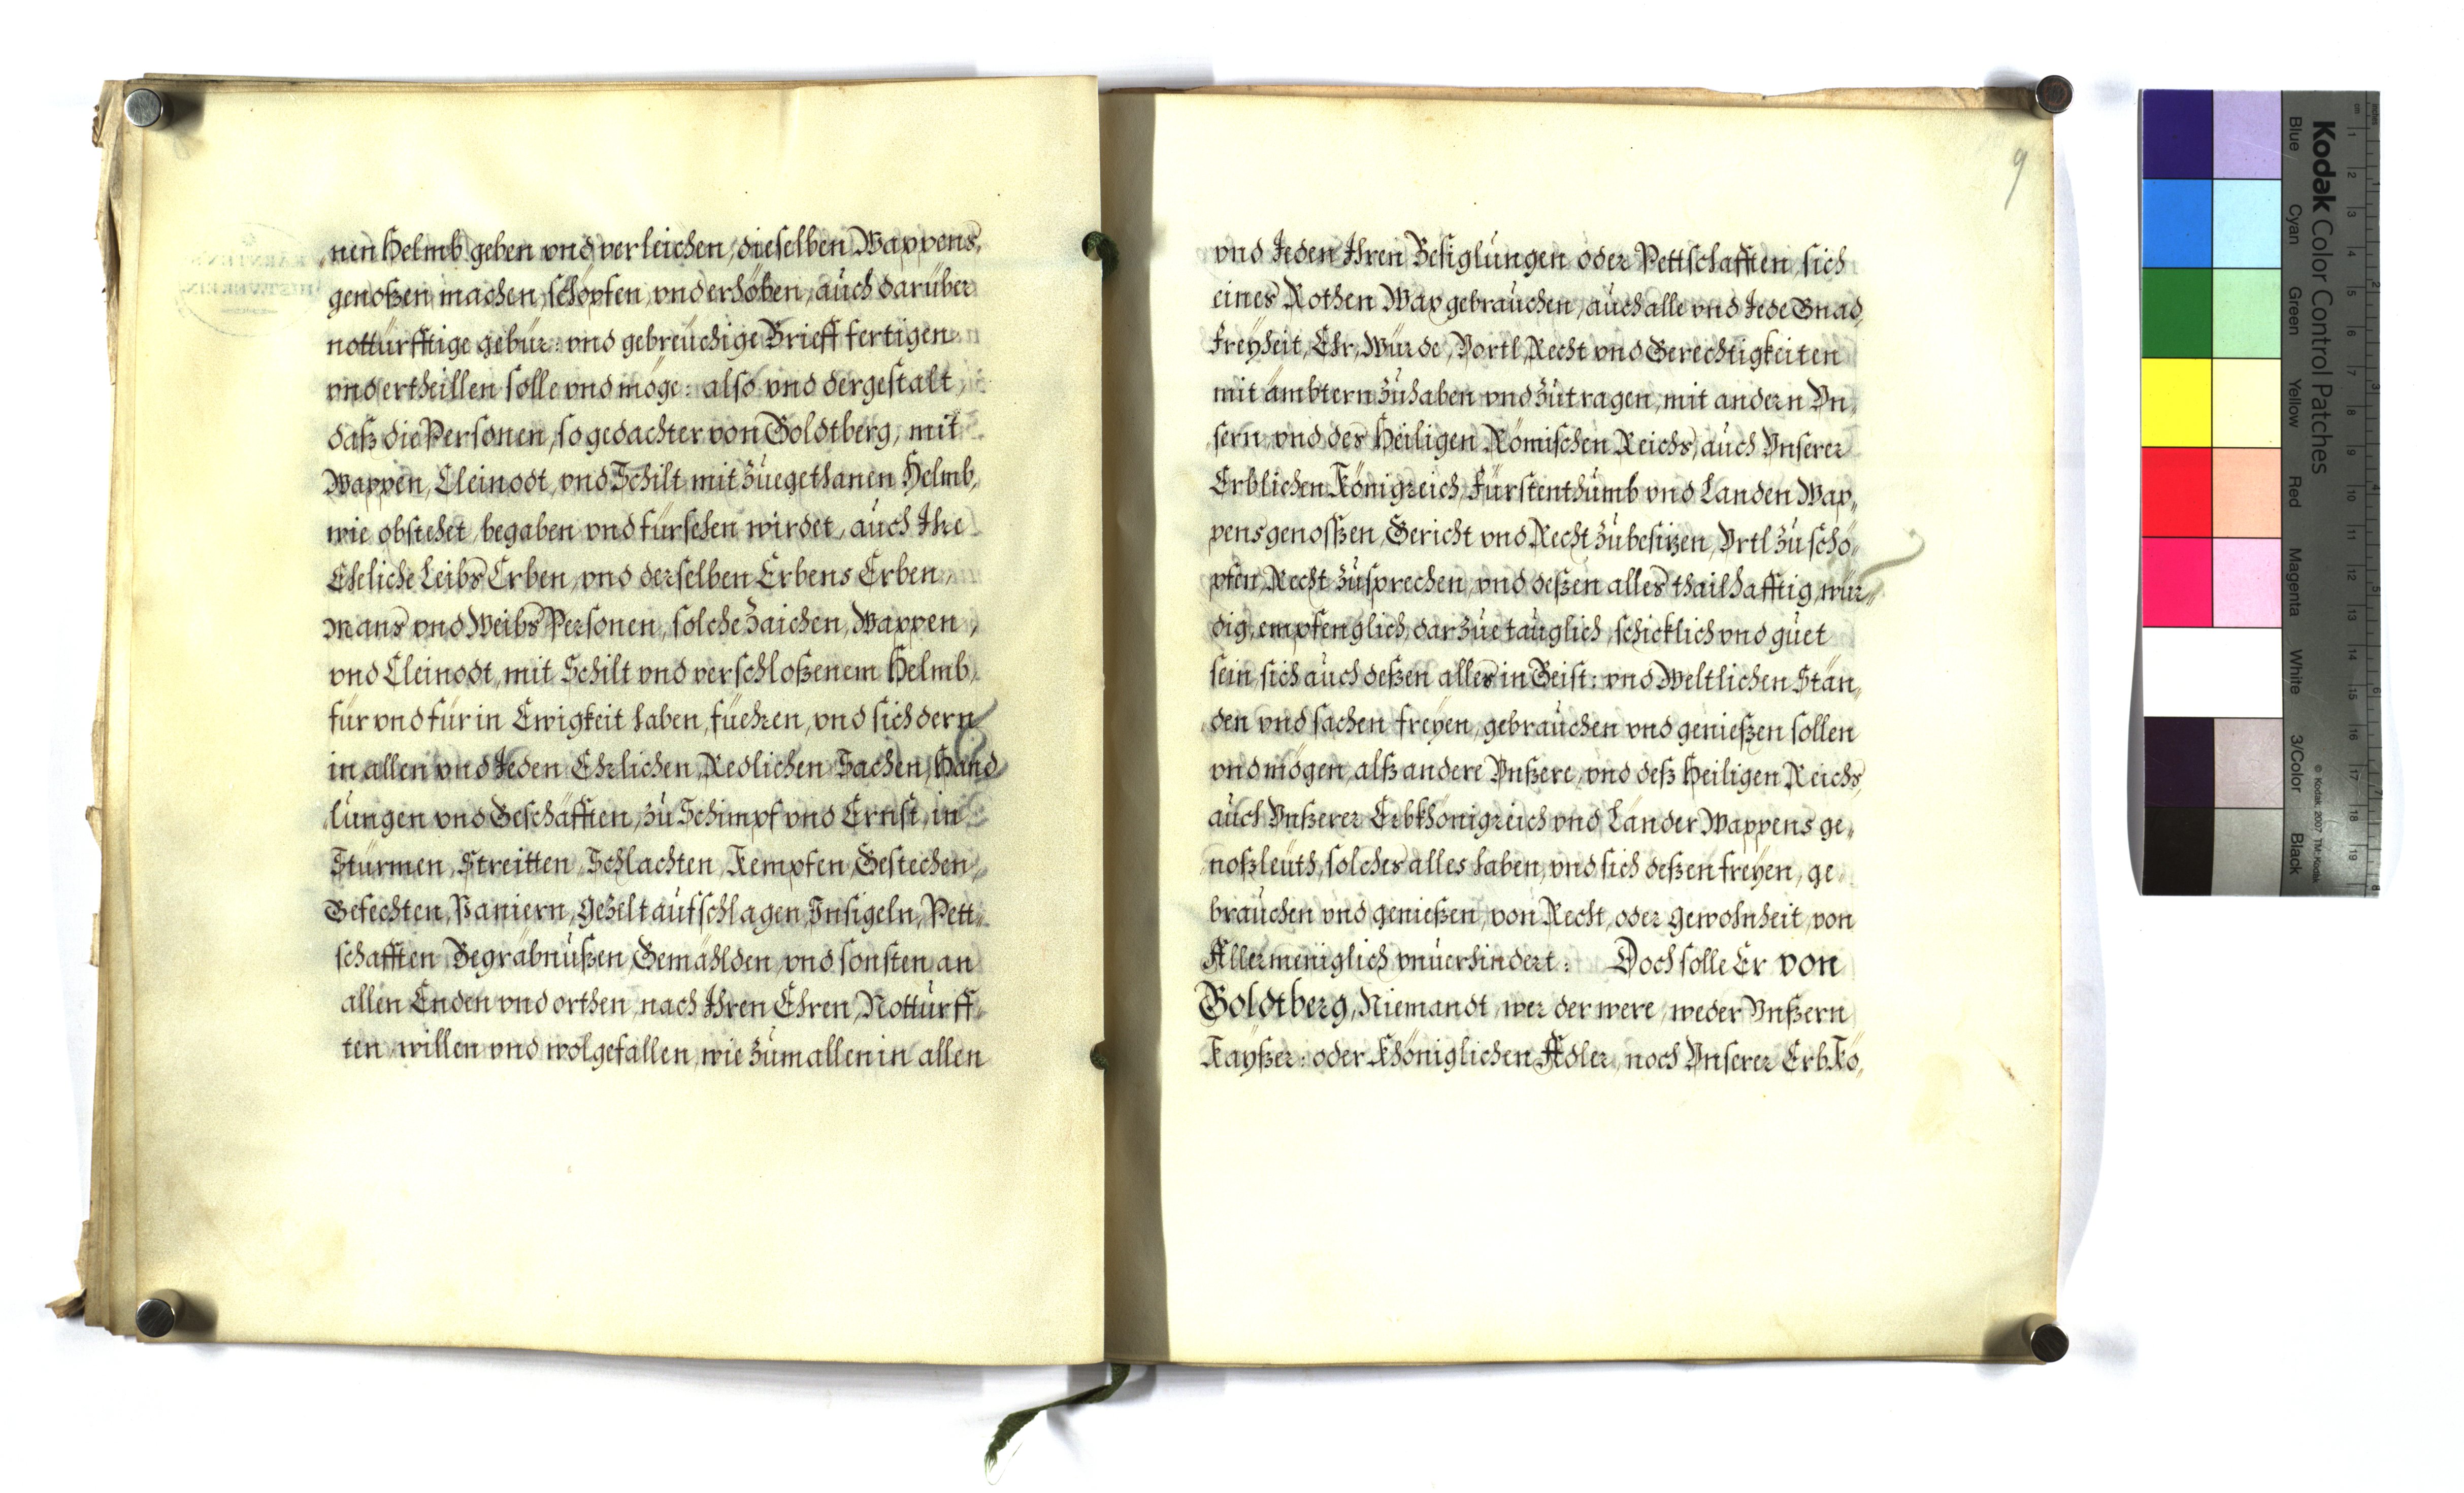 nen Helmb geben vnd verleichen, dieselben Wappens,
genoßen machen, schöpfen, vnd erhöben, auch darüber
notturfftige gebür: vnd gebreüchige Brieff fertigen
vnd ertheillen solle vnd möge: also vnd dergestalt,
daß die Personen, so gedachter von Goldtberg, mit
Wappen, Cleinodt, vnd Schilt mit zuegethanen Helmb,
wie obstehet, begaben vnd fürsehen wirdet, auch Ihre
Eheliche Leibs Erben, vnd derselben Erbens Erben,
Mans vnd Weibs Personen, solche Zaichen, Wappen,
vnd Cleinodt, mit Schilt vnd verschloßenem Helmb,
für vnd für in Ewigkeit haben, füehren, vnd sich dern
in allen vnd Jeden Ehrlichen, Redlichen Sachen, Hand
lungen vnd Geschäfften, zu Schimpf vnd Ernst, in
Stürmen, Streitten, Schlachten, Kempfen, Gestechen,
Gefechten, Paniern, Gezelt aufschlagen, Insigeln, Pett„
schafften, Begräbnußen, Gemählden, vnd sonsten an
allen Enden vnd orthen, nach Ihren Ehren, Notturff„
ten, willen vnd wolgefallen, wie zum allen in allen
9
vnd Jeden Ihren Besiglungen oder Pettschafften, sich
eines Rothen Wax gebrauchen, auch alle vnd Jede Gnad,
Freyheit, Ehr, Würde, Vortl, Recht vnd Gerechtigkeiten
mit ämbtern zuhaben vnd zutragen, mit andern Vn„
sern vnd des Heiligen Römischen Reichs, auch Vnserer
Erblichen Königreich, Fürstenthumb vnd Landen Wap„
pensgenossen, Gericht vnd Recht zubesizen, Vrtl zu schö„
pfen, Recht zusprechen, vnd deßen alles thailhafftig, wür„
dig, empfenglich, darzue tauglich, schicklich vnd guet
sein, sich auch deßen alles in Geist: vnd Weltlichen Stän„
den vnd sachen freyen, gebrauchen vnd genießen sollen
vnd mögen, alß andere Vnßere, vnd deß Heiligen Reichs,
auch Vnßerer Erbkhönigreich vnd Länder Wappens ge„
noßleüth, solches alles haben, vnd sich deßen freyen, ge
brauchen vnd genießen, von Recht, oder gewohnheit, von
Allermeniglich vnuerhindert: Doch solle Er von
Goldtberg, Niemandt, wer der were, weder Vnßern
Kayßer: oder Khöniglichen Adler, noch Vnserer Erb Kö„
Kodak Color Control Patches
Blue Cyan Green Yellow Red Magenta White 3/Color Black
© Kodak, 2007 TM: Kodak